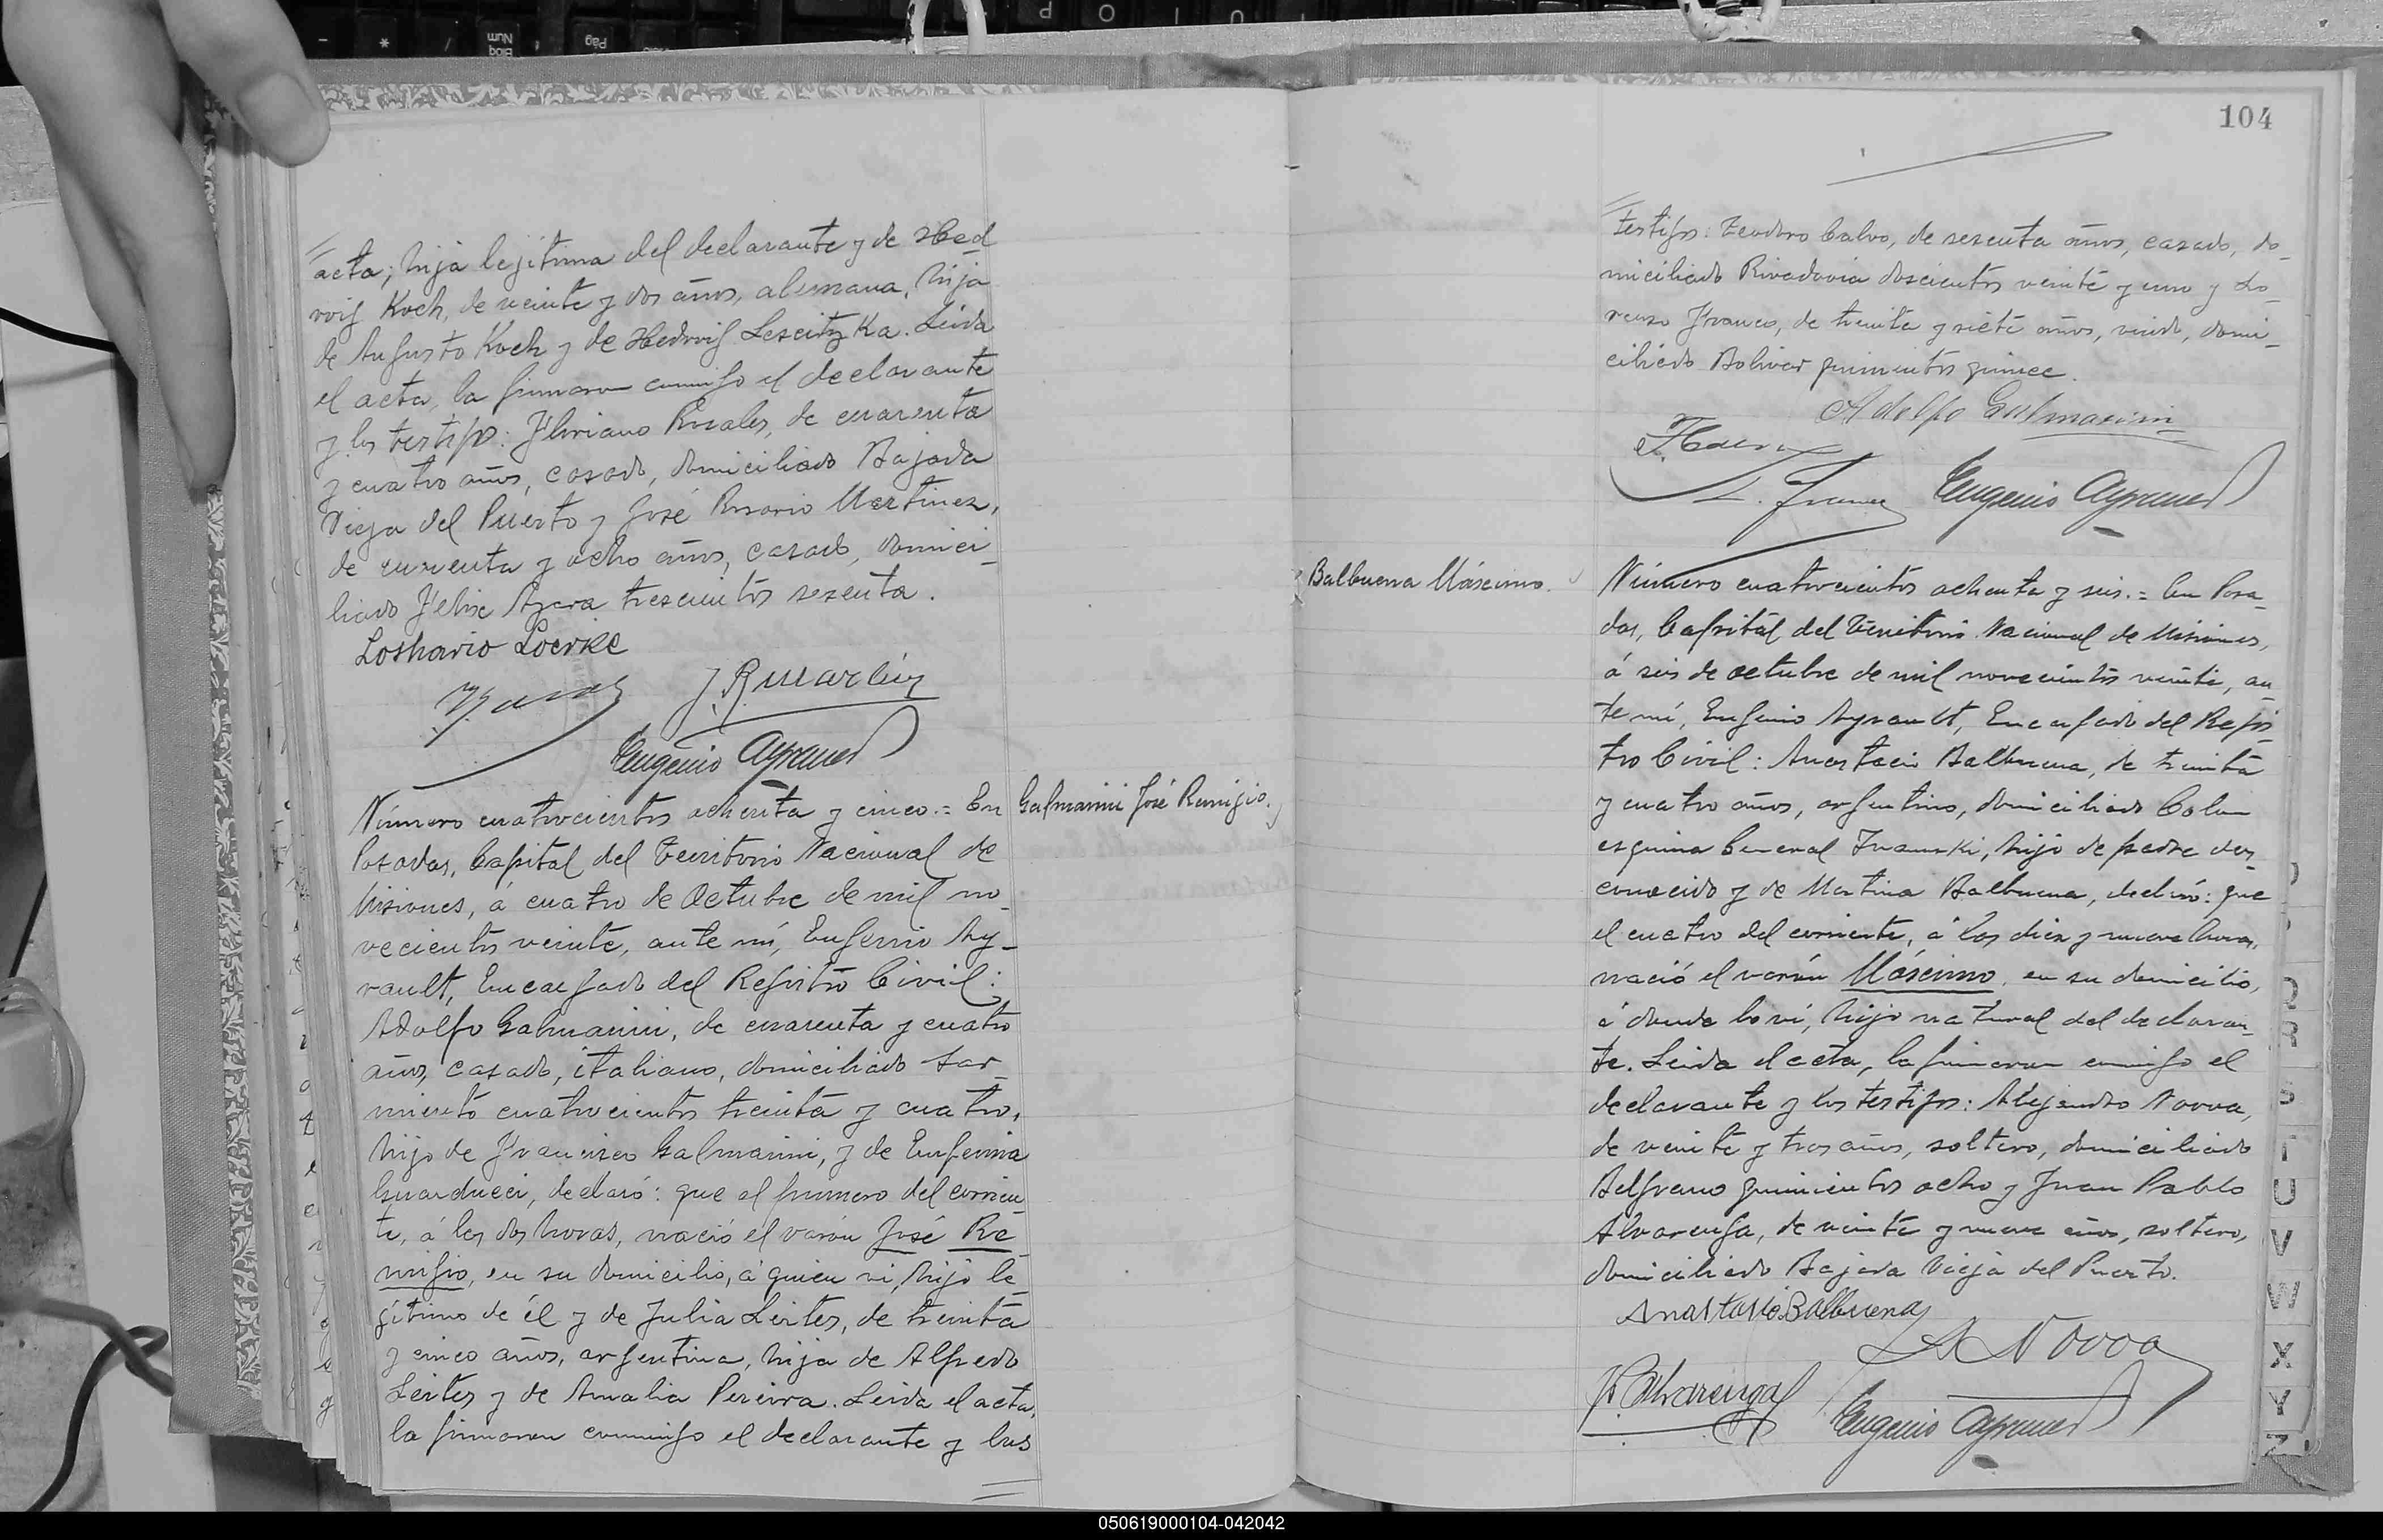 acta; hija legítima del declarante y de Hed
wig Koch, de veinte y dos años, alemana, hija
de Augusto Koch y de Hedwig Lescitzka. Leida
el acta, la firmaron conmigo el declarante
y los testigos: Floriano Rosales, de cuarenta
y cuatro años, casado, domiciliado Bajada
Vieja del Puerto y José Rosario Martinez,
de cuarenta y ocho años, casado, domici-
liado Felix Azara trescientos sesenta.
Loshario Loerke
J. R. Martinez
Eugenio Ayrault
Galmarini José Remigio.
Número cuatrocientos ochenta y cinco.= En
Posadas, Capital del Territorio Nacional de
Misiones, á cuatro de Octubre de mil no-
vecientos veinte, ante mí, Eugenio Ay-
rault, Encargado del Registro Civil:
Adolfo Galmarini, de cuarenta y cuatro
años, casado, italiano, domiciliado Sar-
miento cuatrocientos treinta y cuatro,
hijo de Francisco Galmarini, y de Eugenia
Guarducci, declaró: que el primero del corrien
te, á las dos horas, nació el varón José Re-
migio, en su domicilio, á quien vi, hijo le-
gítimo de él y de Julia Leites, de treinta
y cinco años, argentina, hija de Alfredo
Leites y de Amalia Pereira. Leida el acta,
la firmaron conmigo el declarante y los
104
testigos: Teodoro Calvo, de sesenta años, casado, do-
miciliado Rivadavia doscientos veinte y uno y Lo-
renzo Franco, de treinta y siete años, viudo, domi-
ciliado Bolivar quinientos quince.
Adolfo Galmarini
L. Franco
Eugenio Ayrault
Balbuena Máscimo.
Número cuatrocientos ochenta y seis.= En Posa-
das, Capital del Territorio Nacional de Misiones,
á seis de octubre de mil novecientos veinte, an
te mí, Eugenio Ayrault, Encargado del Regis
tro Civil: Anastacio Balbuena, de treinta
y cuatro años, argentino, domiciliado Colon
esquina General Franski, hijo de padre des
conocido y de Martina Balbuena, declaró: que
el cuatro del corriente, á las diez y nueve horas,
nació el varón Máscimo, en su domicilio,
á donde lo ví, hijo natural del declaran-
te. Leida el acta, la firmaron conmigo el
declarante y los testigos: Alejandro Novoa,
de veinte y tres años, soltero, domiciliado
Belgrano quinientos ocho y Juan Pablo
Alvarenga, de veinte y nueve años, soltero,
domiciliado Bajada Vieja del Puerto.
Anastasio Balbuena
A Novoa
J P Alvarenga
Eugenio Ayrault
Q
R
S
T
U
V
W
X
Y
Z
050619000104-042042